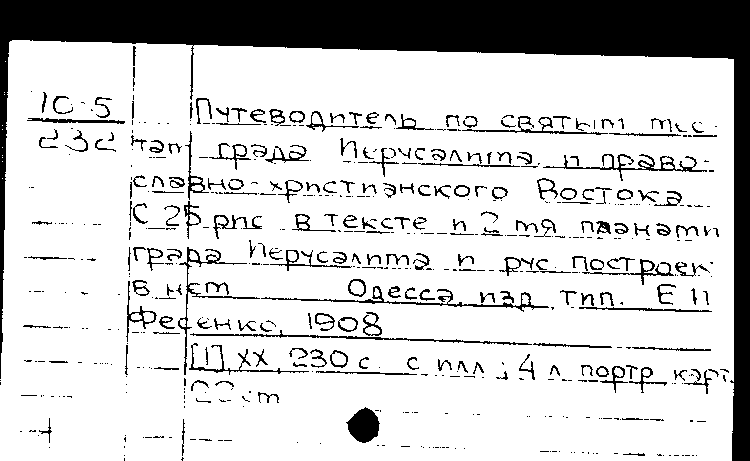 10-5
232
Путеводитель по святым мес-
там града Иерусалима и право-
славно-христианского Востока
С 25 рис в тексте и 2 мя планами
града Иерусалима и рус построек
в нем Одесса, изд тип. Е И
Фесенко, 1908
[1], XX, 230 с. с илл ; 4 л портр, карт.
22 см